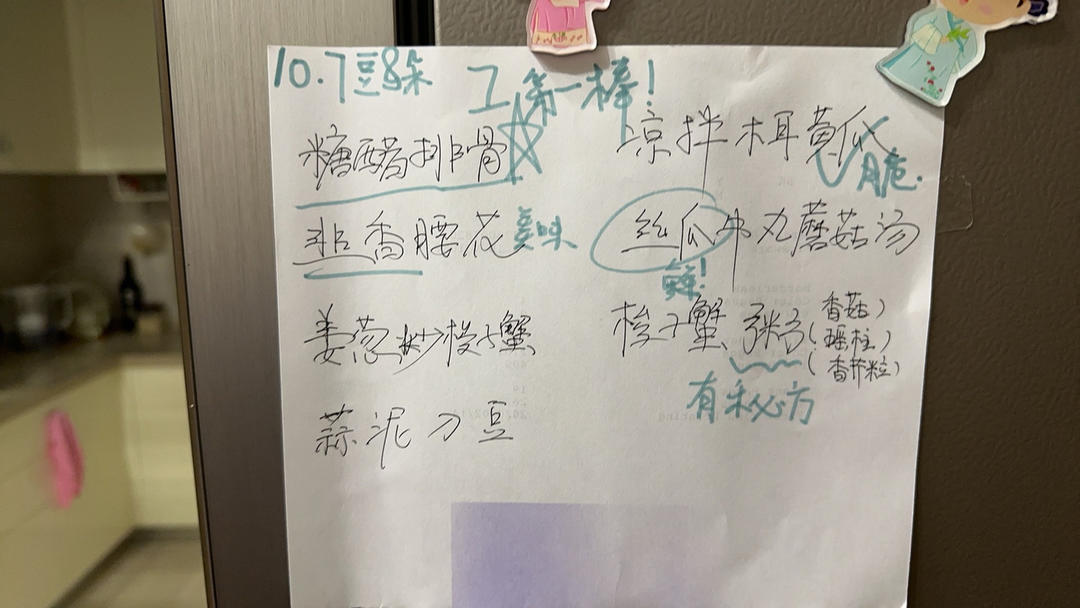 10.7豆朵
第一棒!
糖醋排骨
凉拌木耳黄瓜
脆.
韭香腰花 美味
丝瓜牛丸蘑菇汤
鲜!
姜葱炒梭子蟹
梭子蟹粥(香菇)
(瑶柱)
(香芹粒)
有秘方
蒜泥刀豆